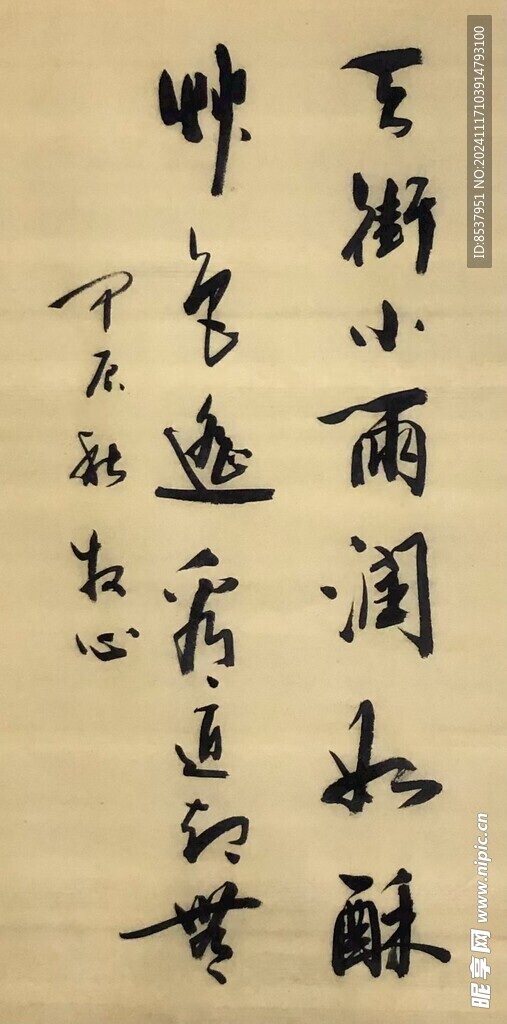 天街小雨潤如酥
草色遙看近却無
甲辰秋 牧心
ID:8537951 NO:20241117103914793100
昵享网 www.nipic.cn